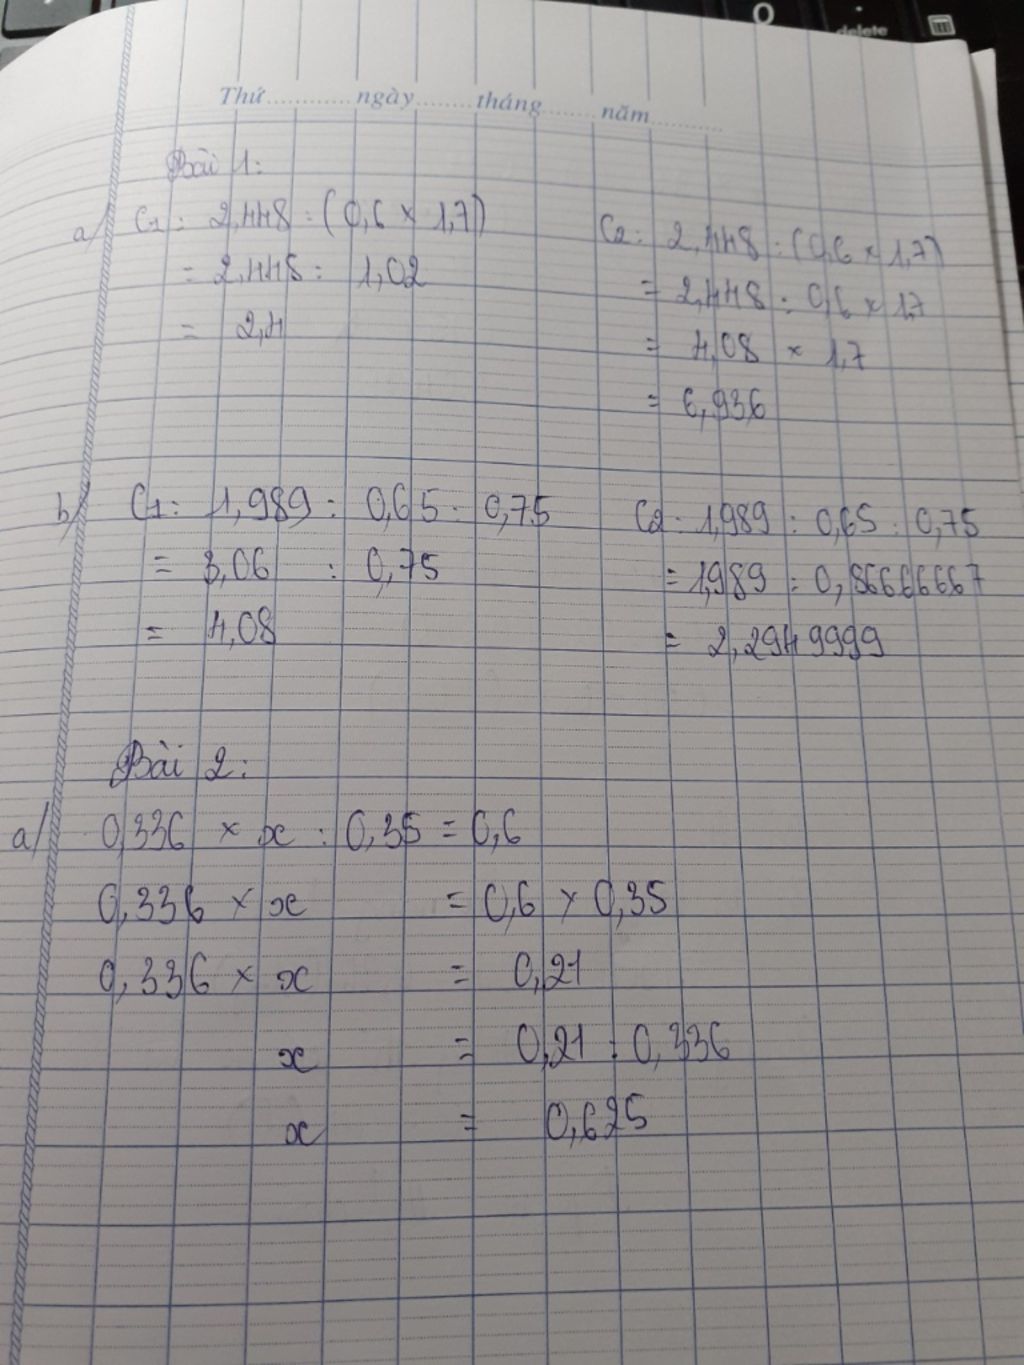 delete
Thứ............ngày........tháng........năm..........
Bài 1:
a/ C1: 2,448 : (0,6 × 1,7)
= 2,448 : 1,02
= 2,4
C2: 2,448 : (0,6 × 1,7)
= 2,448 : 0,6 × 1,7
= 4,08 × 1,7
= 6,936
b/ C1: 1,989 : 0,65 : 0,75
= 3,06 : 0,75
= 4,08
C2: 1,989 : 0,65 : 0,75
= 1,989 : 0,86666667
= 2,2949999
Bài 2:
a/ 0,336 × x : 0,35 = 0,6
0,336 × x = 0,6 × 0,35
0,336 × x = 0,21
x = 0,21 : 0,336
x = 0,625